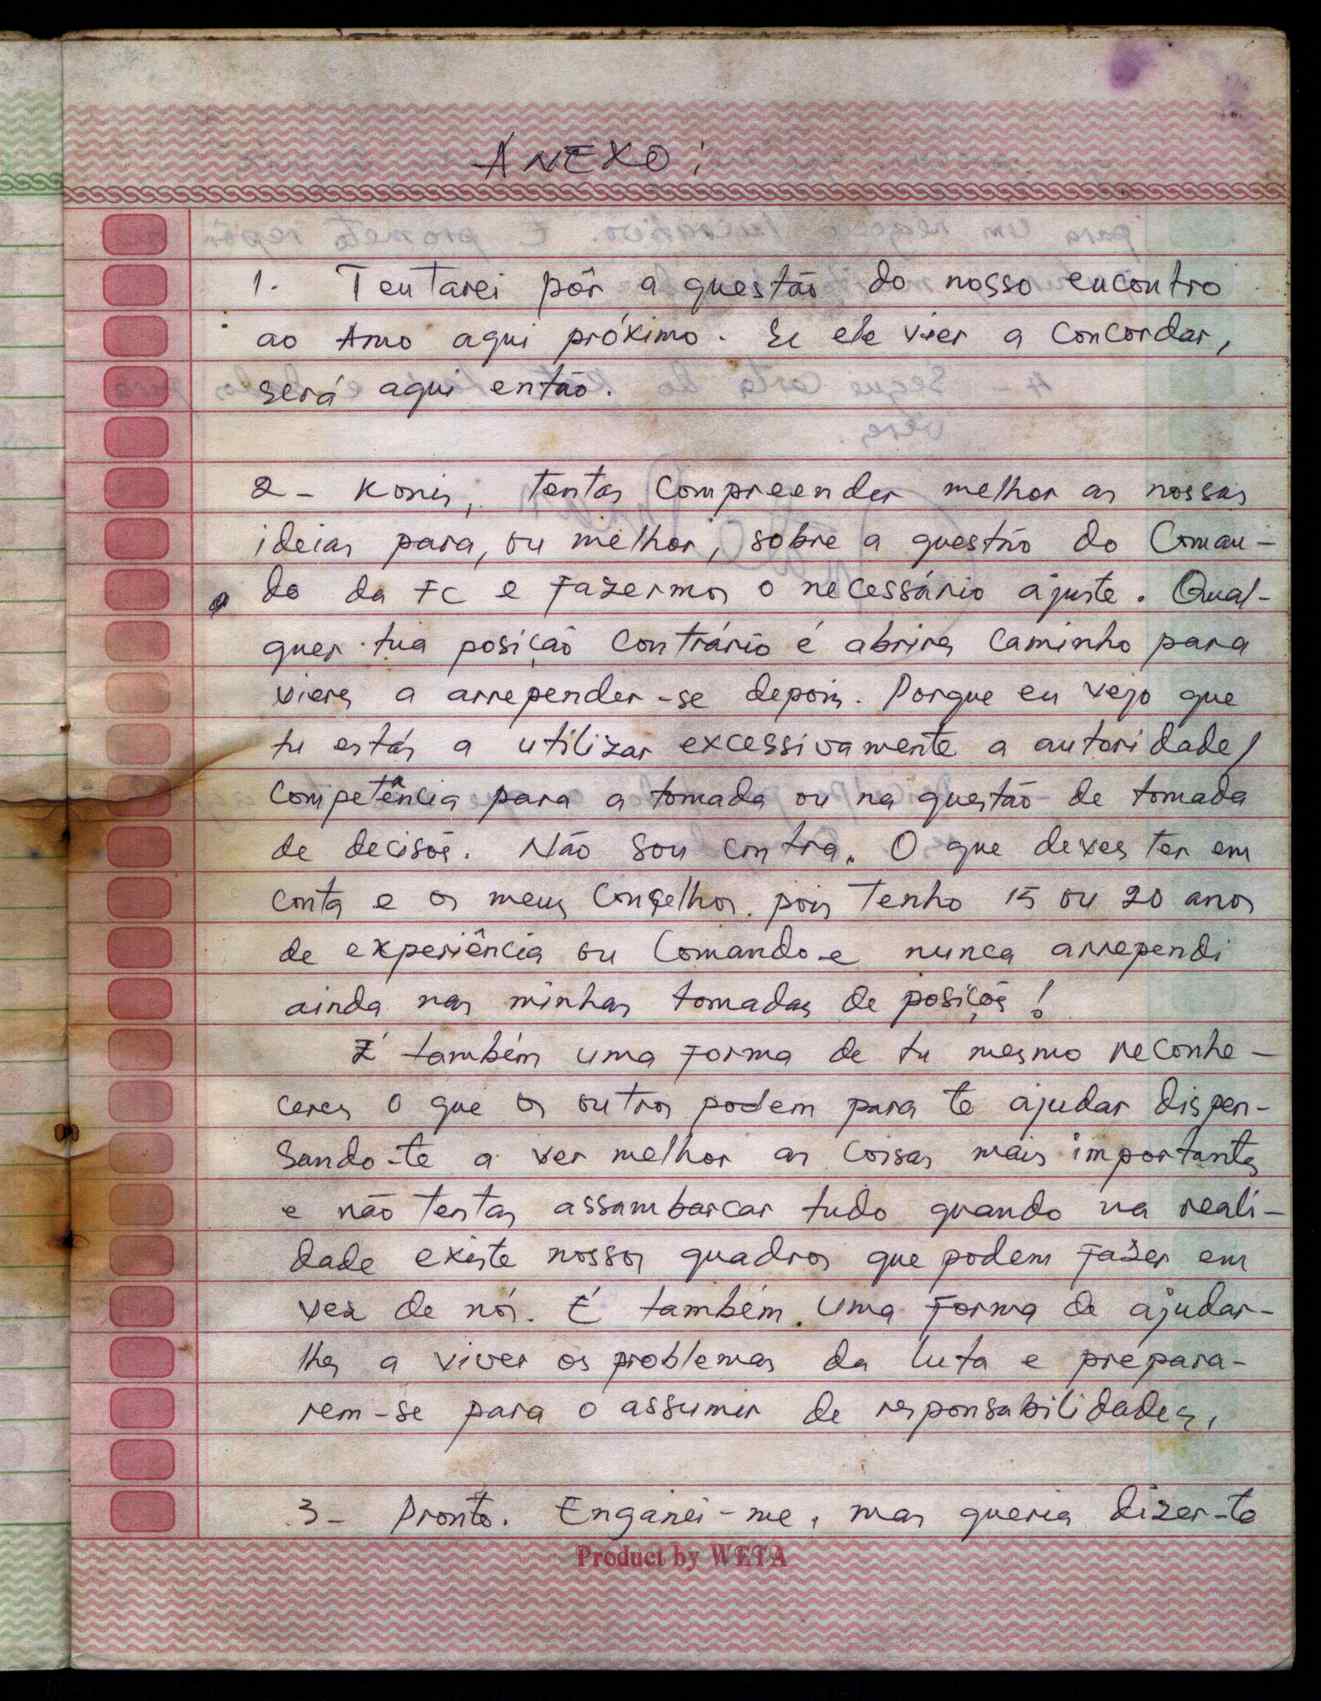 ANEXO:
1. Tentarei pôr a questão do nosso encontro
ao Amo aqui próximo. Se ele vier a concordar,
será aqui então.
2- Konis, tentas compreender melhor as nossas
ideias para, ou melhor, sobre a questão do Coman-
do da FC e fazermos o necessário ajuste. Qual-
quer tua posição contrário é abrires caminho para
vieres a arrepender-se depois. Porque eu vejo que
tu estás a utilizar excessivamente a autoridade/
competência para a tomada ou na questão de tomada
de decisõs. Não sou contra. O que deves ter em
conta e os meus Conselhos. pois tenho 15 ou 20 anos
de experiência ou Comando e nunca arrependi
ainda nas minhas tomadas de posiçõs!
É também uma forma de tu mesmo reconhe-
ceres o que os outros podem para te ajudar dispen-
sando-te a ver melhor as coisas mais importantes
e não tentas assambarcar tudo quando na reali-
dade existe nossos quadros que podem fazer em
vez de nós. É também uma forma de ajudar-
lhes a viver os problemas da luta e prepara-
rem-se para o assumir de responsabilidades.
3- Pronto. Enganei-me, mas queria dizer-te
Product by WETA